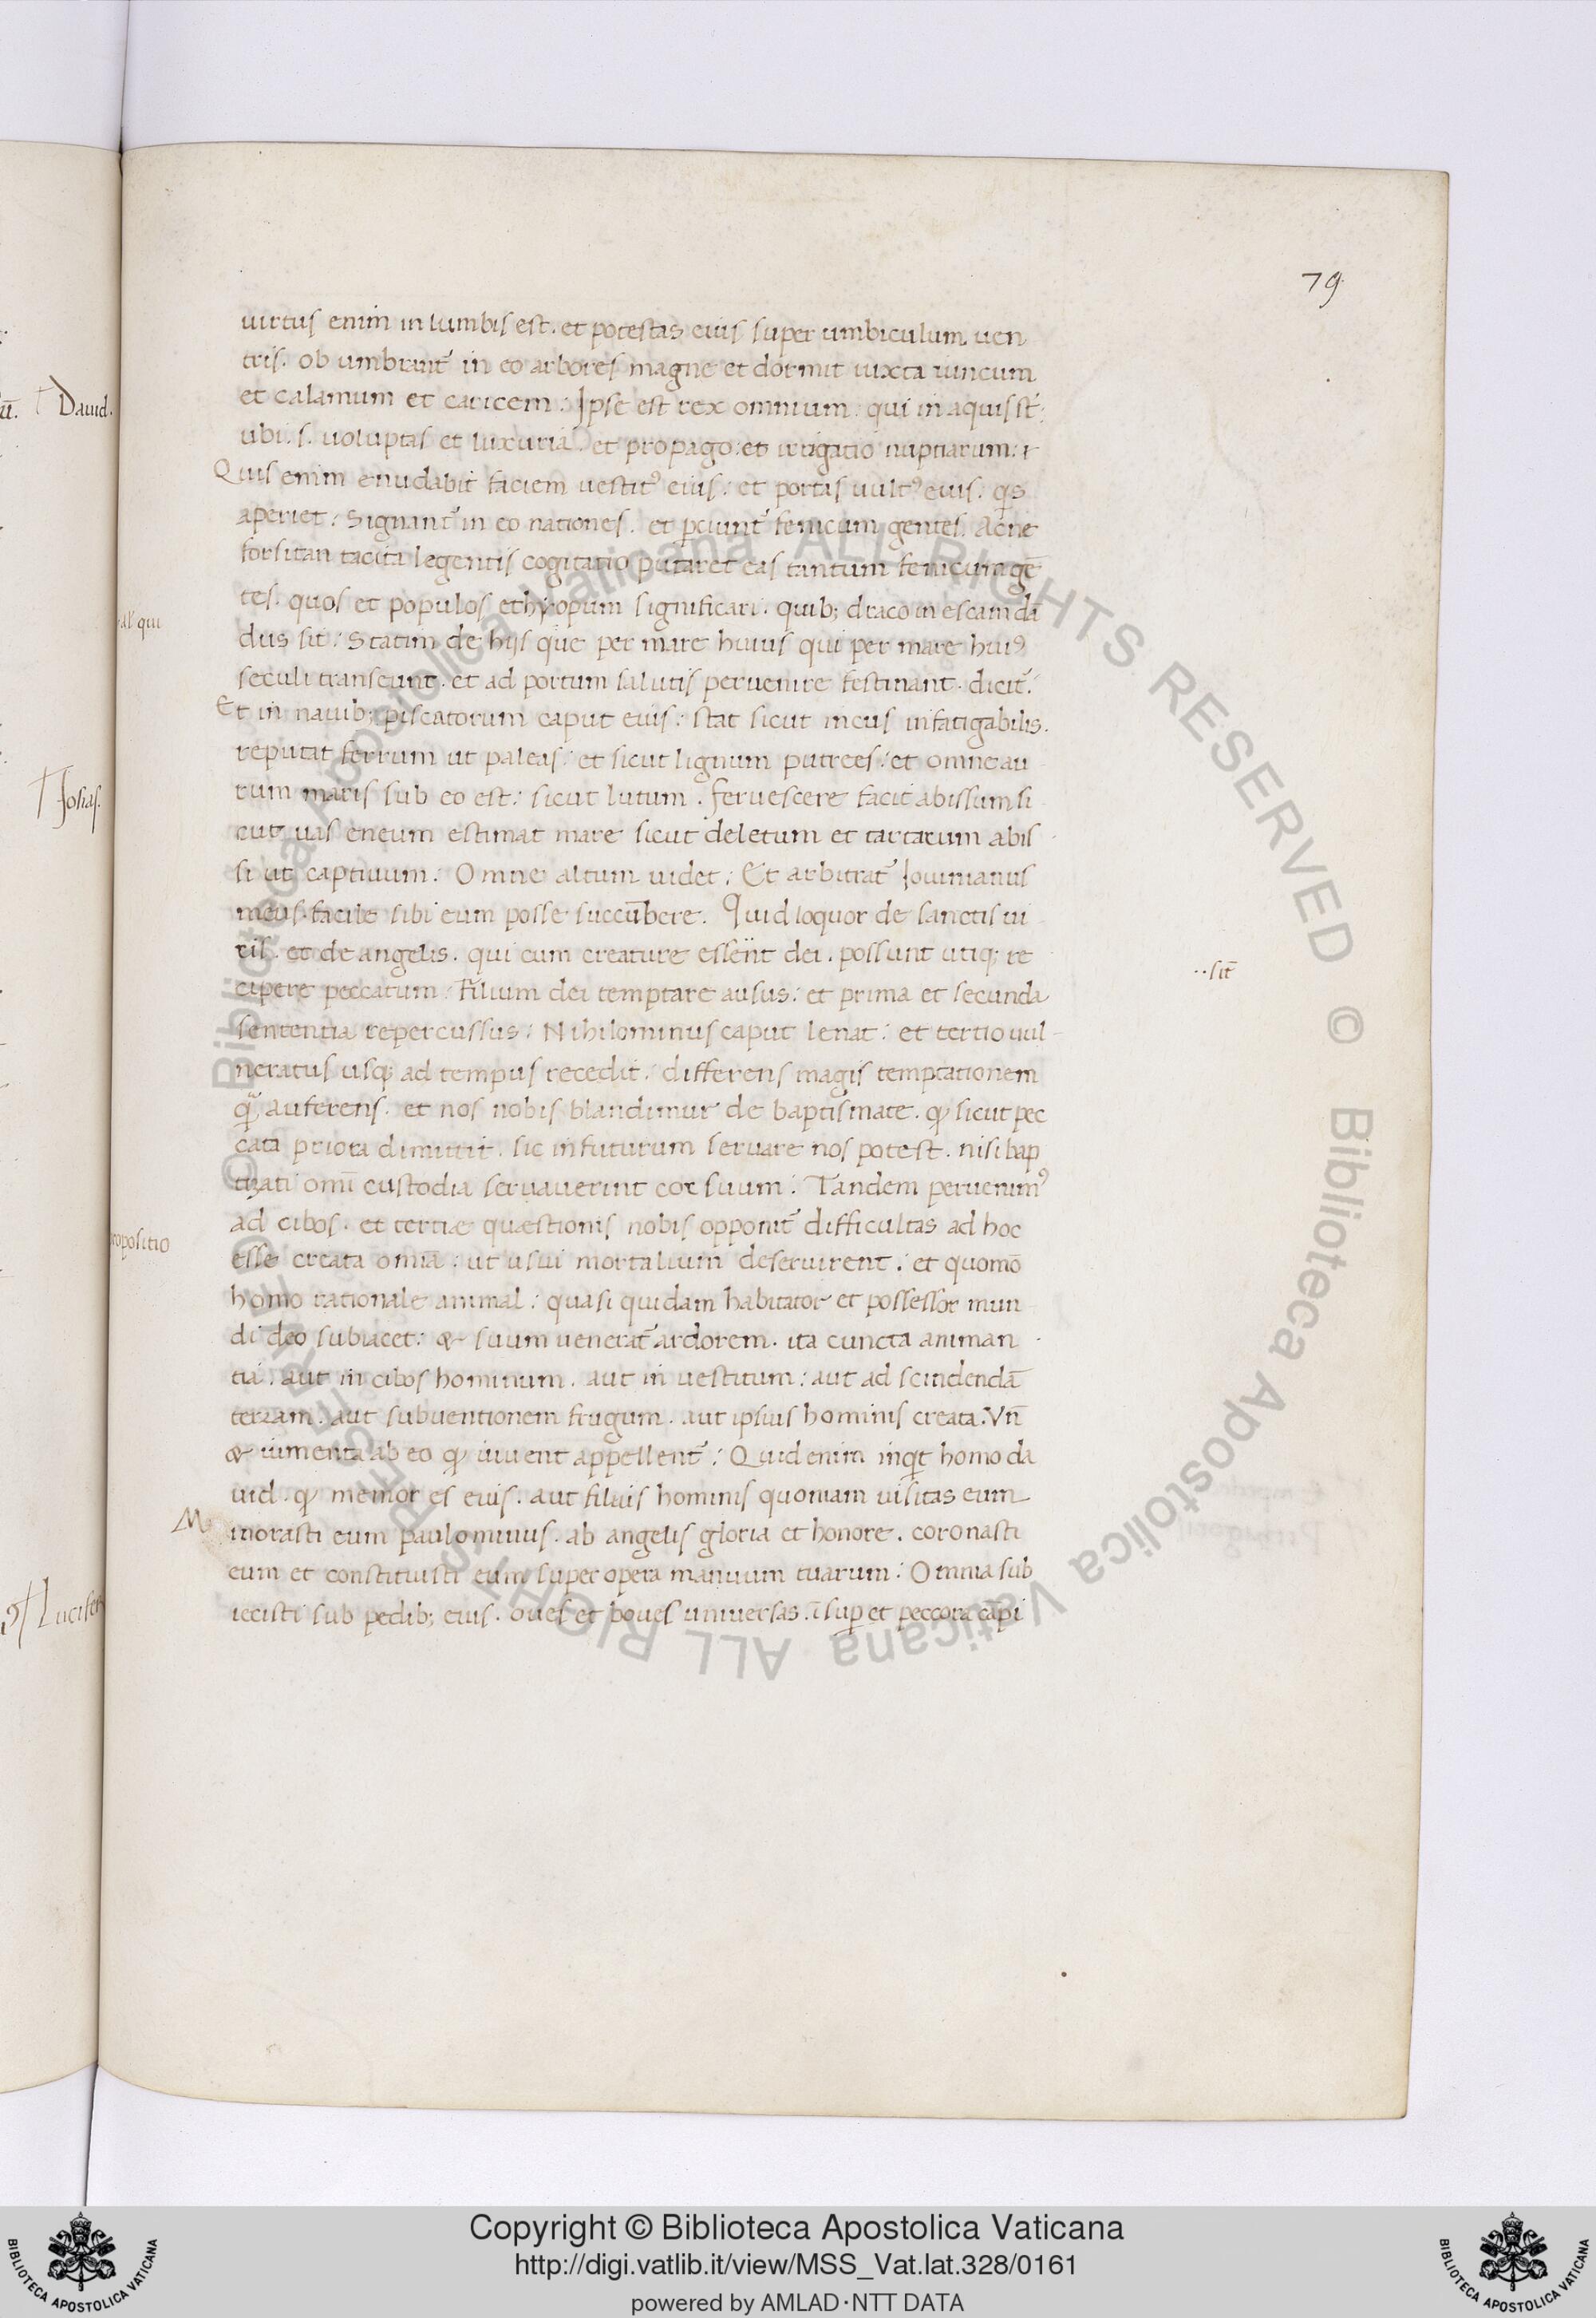 79
uirtus enim in lumbis est. et potestas eius super umbiculum uen
tris. ob umbrant̃ in eo arbores magne et dormit iuxta iuncum
et calamum et caricem: Ipse est rex omnium: qui in aquis st̃:
ubi. s. uoluptas et luxuria. et propago: et irrigatio nuptiarum:
Quis enim enudabit faciem uestitꝰ eius: et portas uultꝰ eius. qis
aperiet: Signant̃ in eo nationes. et pciunt̃ fenicum gentes. Ac ne
forsitan tacita legentis cogitatio putaret eas tantum fenicum gē
tes. quos et populos ethyopum significari. quib; draco in escam dā
dus sit: Statim de hijs que per mare huius qui per mare huiꝰ
seculi transeunt. et ad portum salutis peruenire festinant. dicit̃:
Et in nauib; piscatorum caput eius: stat sicut incus infatigabilis.
reputat ferrum ut paleas: et sicut lignum putrees: et omne au
rum maris sub eo est: sicut lutum. feruescere facit abissum si
cut uas eneum estimat mare sicut deletum et tartarum abis
si ut captiuum: Omne altum uidet: Et arbitrat̃ Iouinianus
meus. facile sibi eum posse succūbere. Quid loquor de sanctis ui
ris. et de angelis. qui cum creature essent dei. possunt utiq; re
cipere peccatum: Filium dei temptare ausus: et prima et secunda
sententia repercussus: Nihilominus caput leuat: et tertio uul
neratus usq; ad tempus recedit: differens magis temptationem
q̃ auferens. et nos nobis blandimur de baptismate. ꝙ sicut pec
cata priora dimittit. sic in futurum seruare nos potest. nisi bap
tizati omī custodia seruauerint cor suum: Tandem peruenimꝰ
ad cibos. et tertiæ quæstionis nobis opponit̃ difficultas ad hoc
esse creata omīa: ut usui mortalium deseruirent: et quomō
homo rationale animal: quasi quidam habitator et possessor mun
di deo subiacet: & suum uenerat̃ ardorem. ita cuncta animan
tia: aut in cibos hominum. aut in uestitum: aut ad scindendā
terram. aut subuentionem frugum. aut ipsius hominis creata. Vñ
& iumenta ab eo ꝙ iuuent appellent̃: Quid enim inqt homo da
uid. ꝙ memor es eius. aut filius hominis quoniam uisitas eum
M inorasti eum paulominus. ab angelis gloria et honore. coronasti
eum et constituisti eum super opera manuum tuarum: Omnia sub
iecisti sub pedib; eius. oues et boues uniuersas. ĩsup et peccora cāpi
..sit̃
Dauid.
al' qui
Iosias.
ropositio
Lucifer
Copyright © Biblioteca Apostolica Vaticana
http://digi.vatlib.it/view/MSS_Vat.lat.328/0161
powered by AMLAD·NTT DATA
BIBLIOTECA APOSTOLICA VATICANA
BIBLIOTECA APOSTOLICA VATICANA
© Biblioteca Apostolica Vaticana ALL RIGHTS RESERVED © Biblioteca Apostolica Vaticana ALL RIGHTS RESERVED